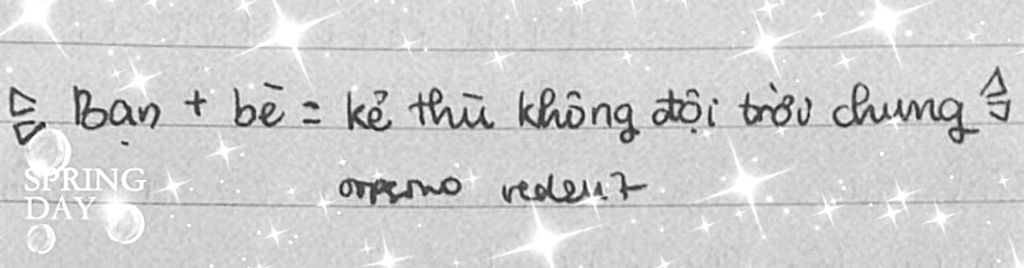 Bạn + bè = kẻ thù không đội trời chung
SPRING
DAY